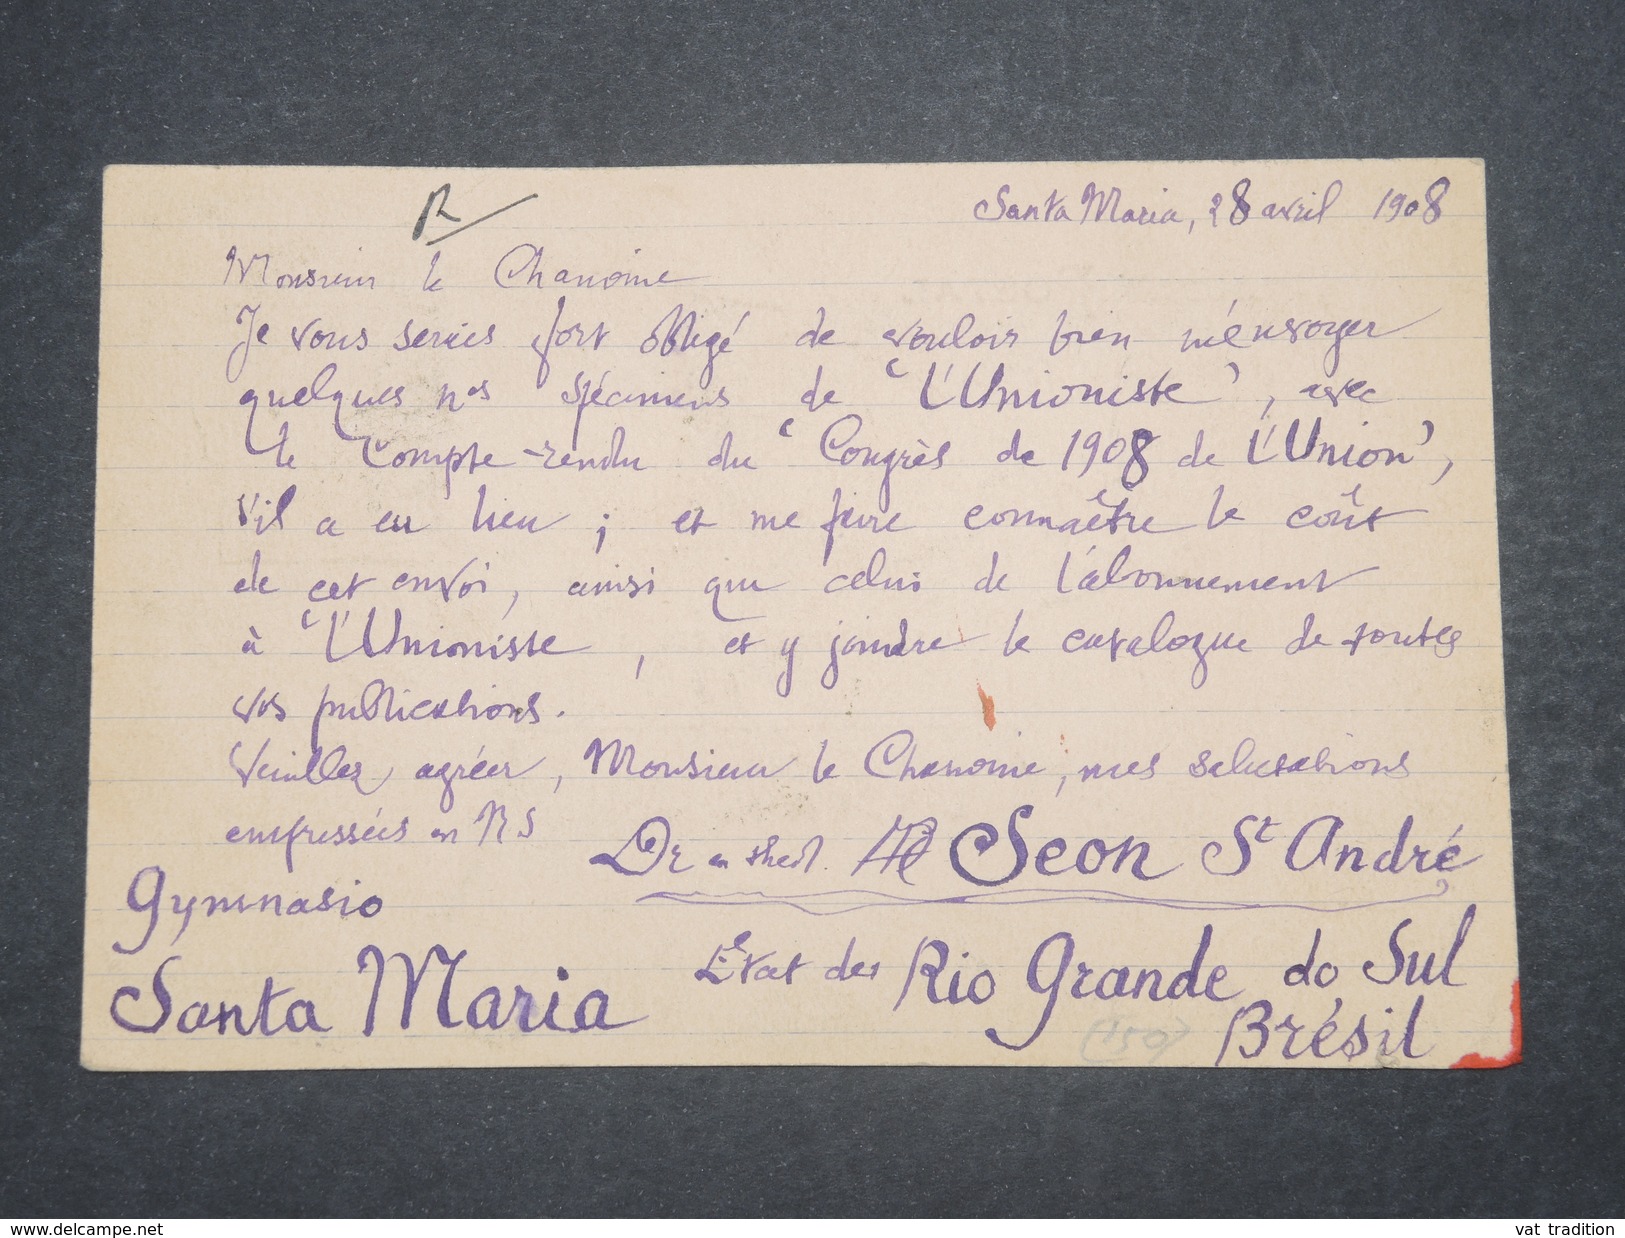 R
Santa Maria, 28 avril 1908
Monsieur le Chanoine
Je vous serais fort obligé de vouloir bien m'envoyer
quelques nos spécimens de "L'Unioniste", avec
le compte-rendu du "Congrès de 1908 de L'Union",
s'il a eu lieu ; et me faire connaître le coût
de cet envoi, ainsi que celui de l'abonnement
à "L'Unioniste, et y joindre le catalogue de toutes
vos publications.
Veuillez agréer, Monsieur le Chanoine, mes salutations
empressées en N S
Dr en théol. Seon St André
Gymnasio
Santa Maria
Etat de Rio Grande do Sul
Brésil
(150)
www.delcampe.net
vat tradition